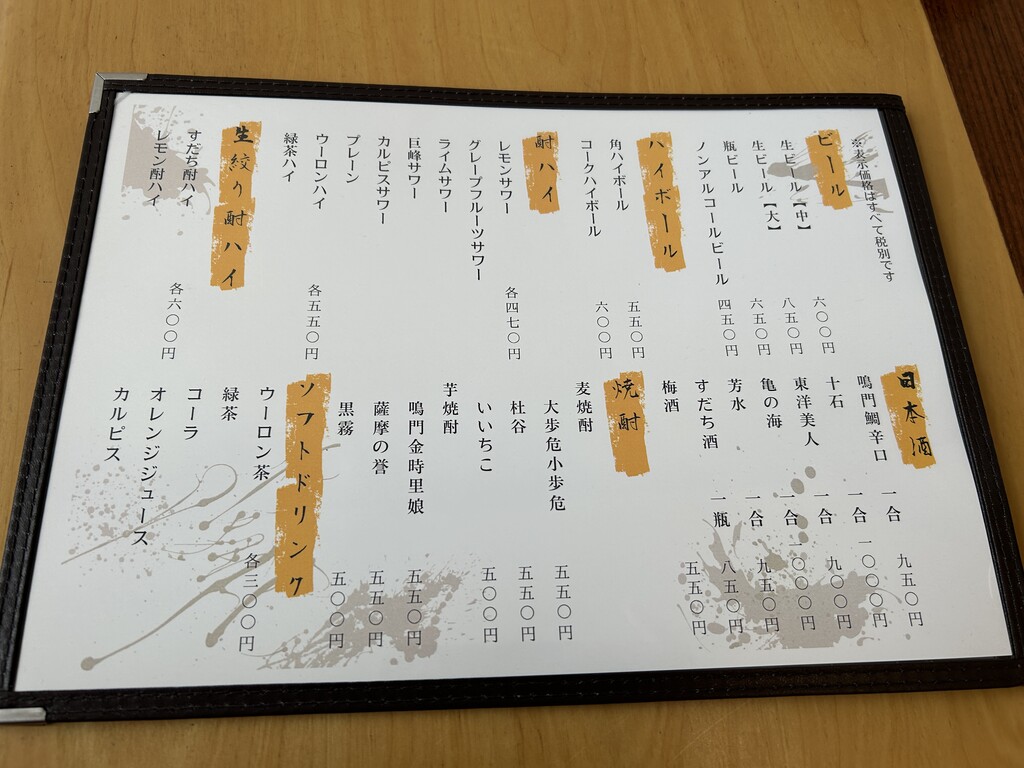 ※表示価格はすべて税別です
ビール
生ビール【中】 六〇〇円
生ビール【大】 八五〇円
瓶ビール 六五〇円
ノンアルコールビール 四五〇円
ハイボール
角ハイボール 五五〇円
コークハイボール 六〇〇円
酎ハイ
レモンサワー 各四七〇円
グレープフルーツサワー
ライムサワー
巨峰サワー
カルピスサワー
プレーン
ウーロンハイ 各五五〇円
緑茶ハイ
生絞り酎ハイ
すだち酎ハイ 各六〇〇円
レモン酎ハイ
日本酒
鳴門鯛辛口 一合 九五〇円
十石 一合 一〇〇〇円
東洋美人 一合 九〇〇円
亀の海 一合 一〇〇〇円
芳水 一合 九五〇円
すだち酒 一瓶 八五〇円
梅酒 五五〇円
焼酎
麦焼酎
大歩危小歩危 五五〇円
杜谷 五五〇円
いいちこ 五〇〇円
芋焼酎
鳴門金時里娘 五五〇円
薩摩の誉 五五〇円
黒霧 五〇〇円
ソフトドリンク
ウーロン茶 各三〇〇円
緑茶
コーラ
オレンジジュース
カルピス